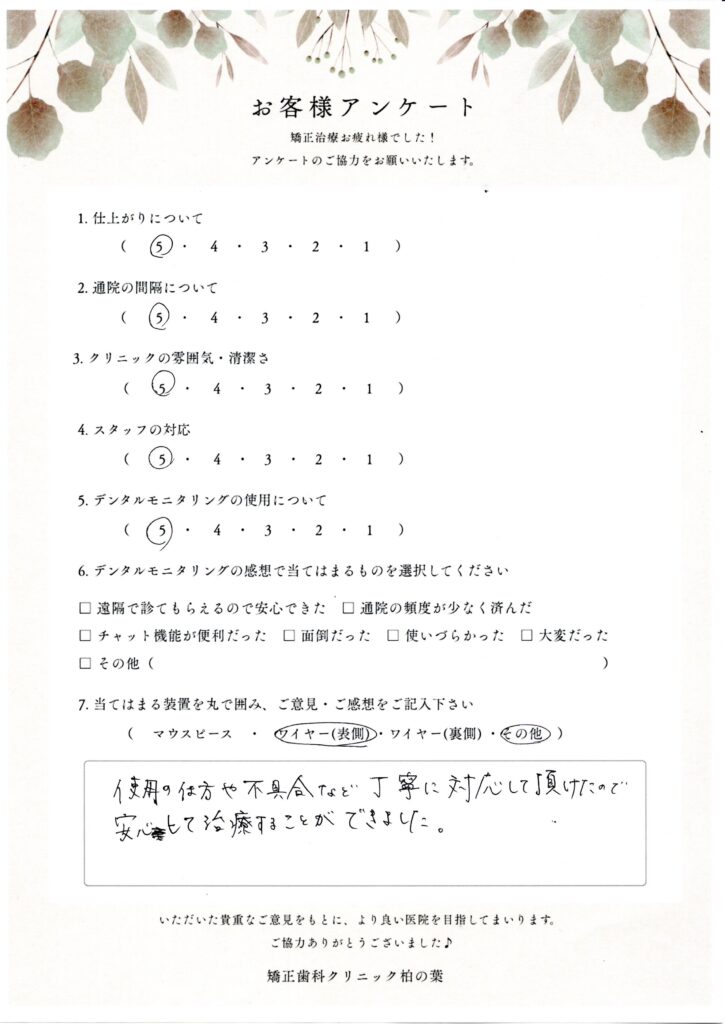 お客様アンケート
矯正治療お疲れ様でした！
アンケートのご協力をお願いいたします。
1. 仕上がりについて
（ 5 ・ 4 ・ 3 ・ 2 ・ 1 ）
2. 通院の間隔について
（ 5 ・ 4 ・ 3 ・ 2 ・ 1 ）
3. クリニックの雰囲気・清潔さ
（ 5 ・ 4 ・ 3 ・ 2 ・ 1 ）
4. スタッフの対応
（ 5 ・ 4 ・ 3 ・ 2 ・ 1 ）
5. デンタルモニタリングの使用について
（ 5 ・ 4 ・ 3 ・ 2 ・ 1 ）
6. デンタルモニタリングの感想で当てはまるものを選択してください
□ 遠隔で診てもらえるので安心できた □ 通院の頻度が少なく済んだ
□ チャット機能が便利だった □ 面倒だった □ 使いづらかった □ 大変だった
□ その他（ ）
7. 当てはまる装置を丸で囲み、ご意見・ご感想をご記入下さい
（ マウスピース ・ ワイヤー(表側)・ワイヤー(裏側)・その他 ）
使用の仕方や不具合など丁寧に対応して頂けたので
安心して治療することができました。
いただいた貴重なご意見をもとに、より良い医院を目指してまいります。
ご協力ありがとうございました♪
矯正歯科クリニック柏の葉